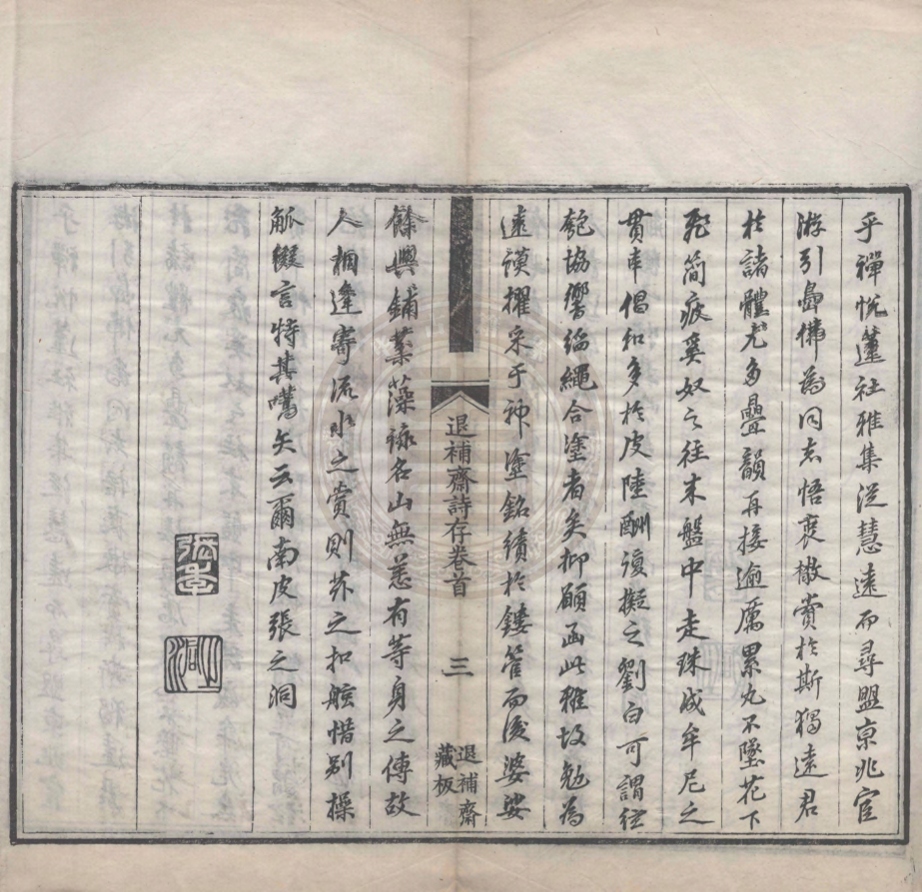 乎禪悅蓮社雅集從慧遠而尋盟京兆宦
游引曇彿為同志悟衷檄賞於斯獨遠君
於諸體尤多疊韻再接逾厲累丸不墜花下
飛箋疲奚奴之往來盤中走珠成牟尼之
貫奉倡和多於皮陸酬復擬之劉白可謂絃
匏協響繩合塗者矣抑願函此雅故勉為
遠謨擢采于神塗銘績於鏤管而後婆娑
餘興鋪棻藻詠名山無恙有等身之傳故
人相逢寄流水之賞則芥之扣舷惜別操
觚綴言特其嚆矢云爾南皮張之洞
退補齋詩存卷首
三
退補齋
藏板
張
洞